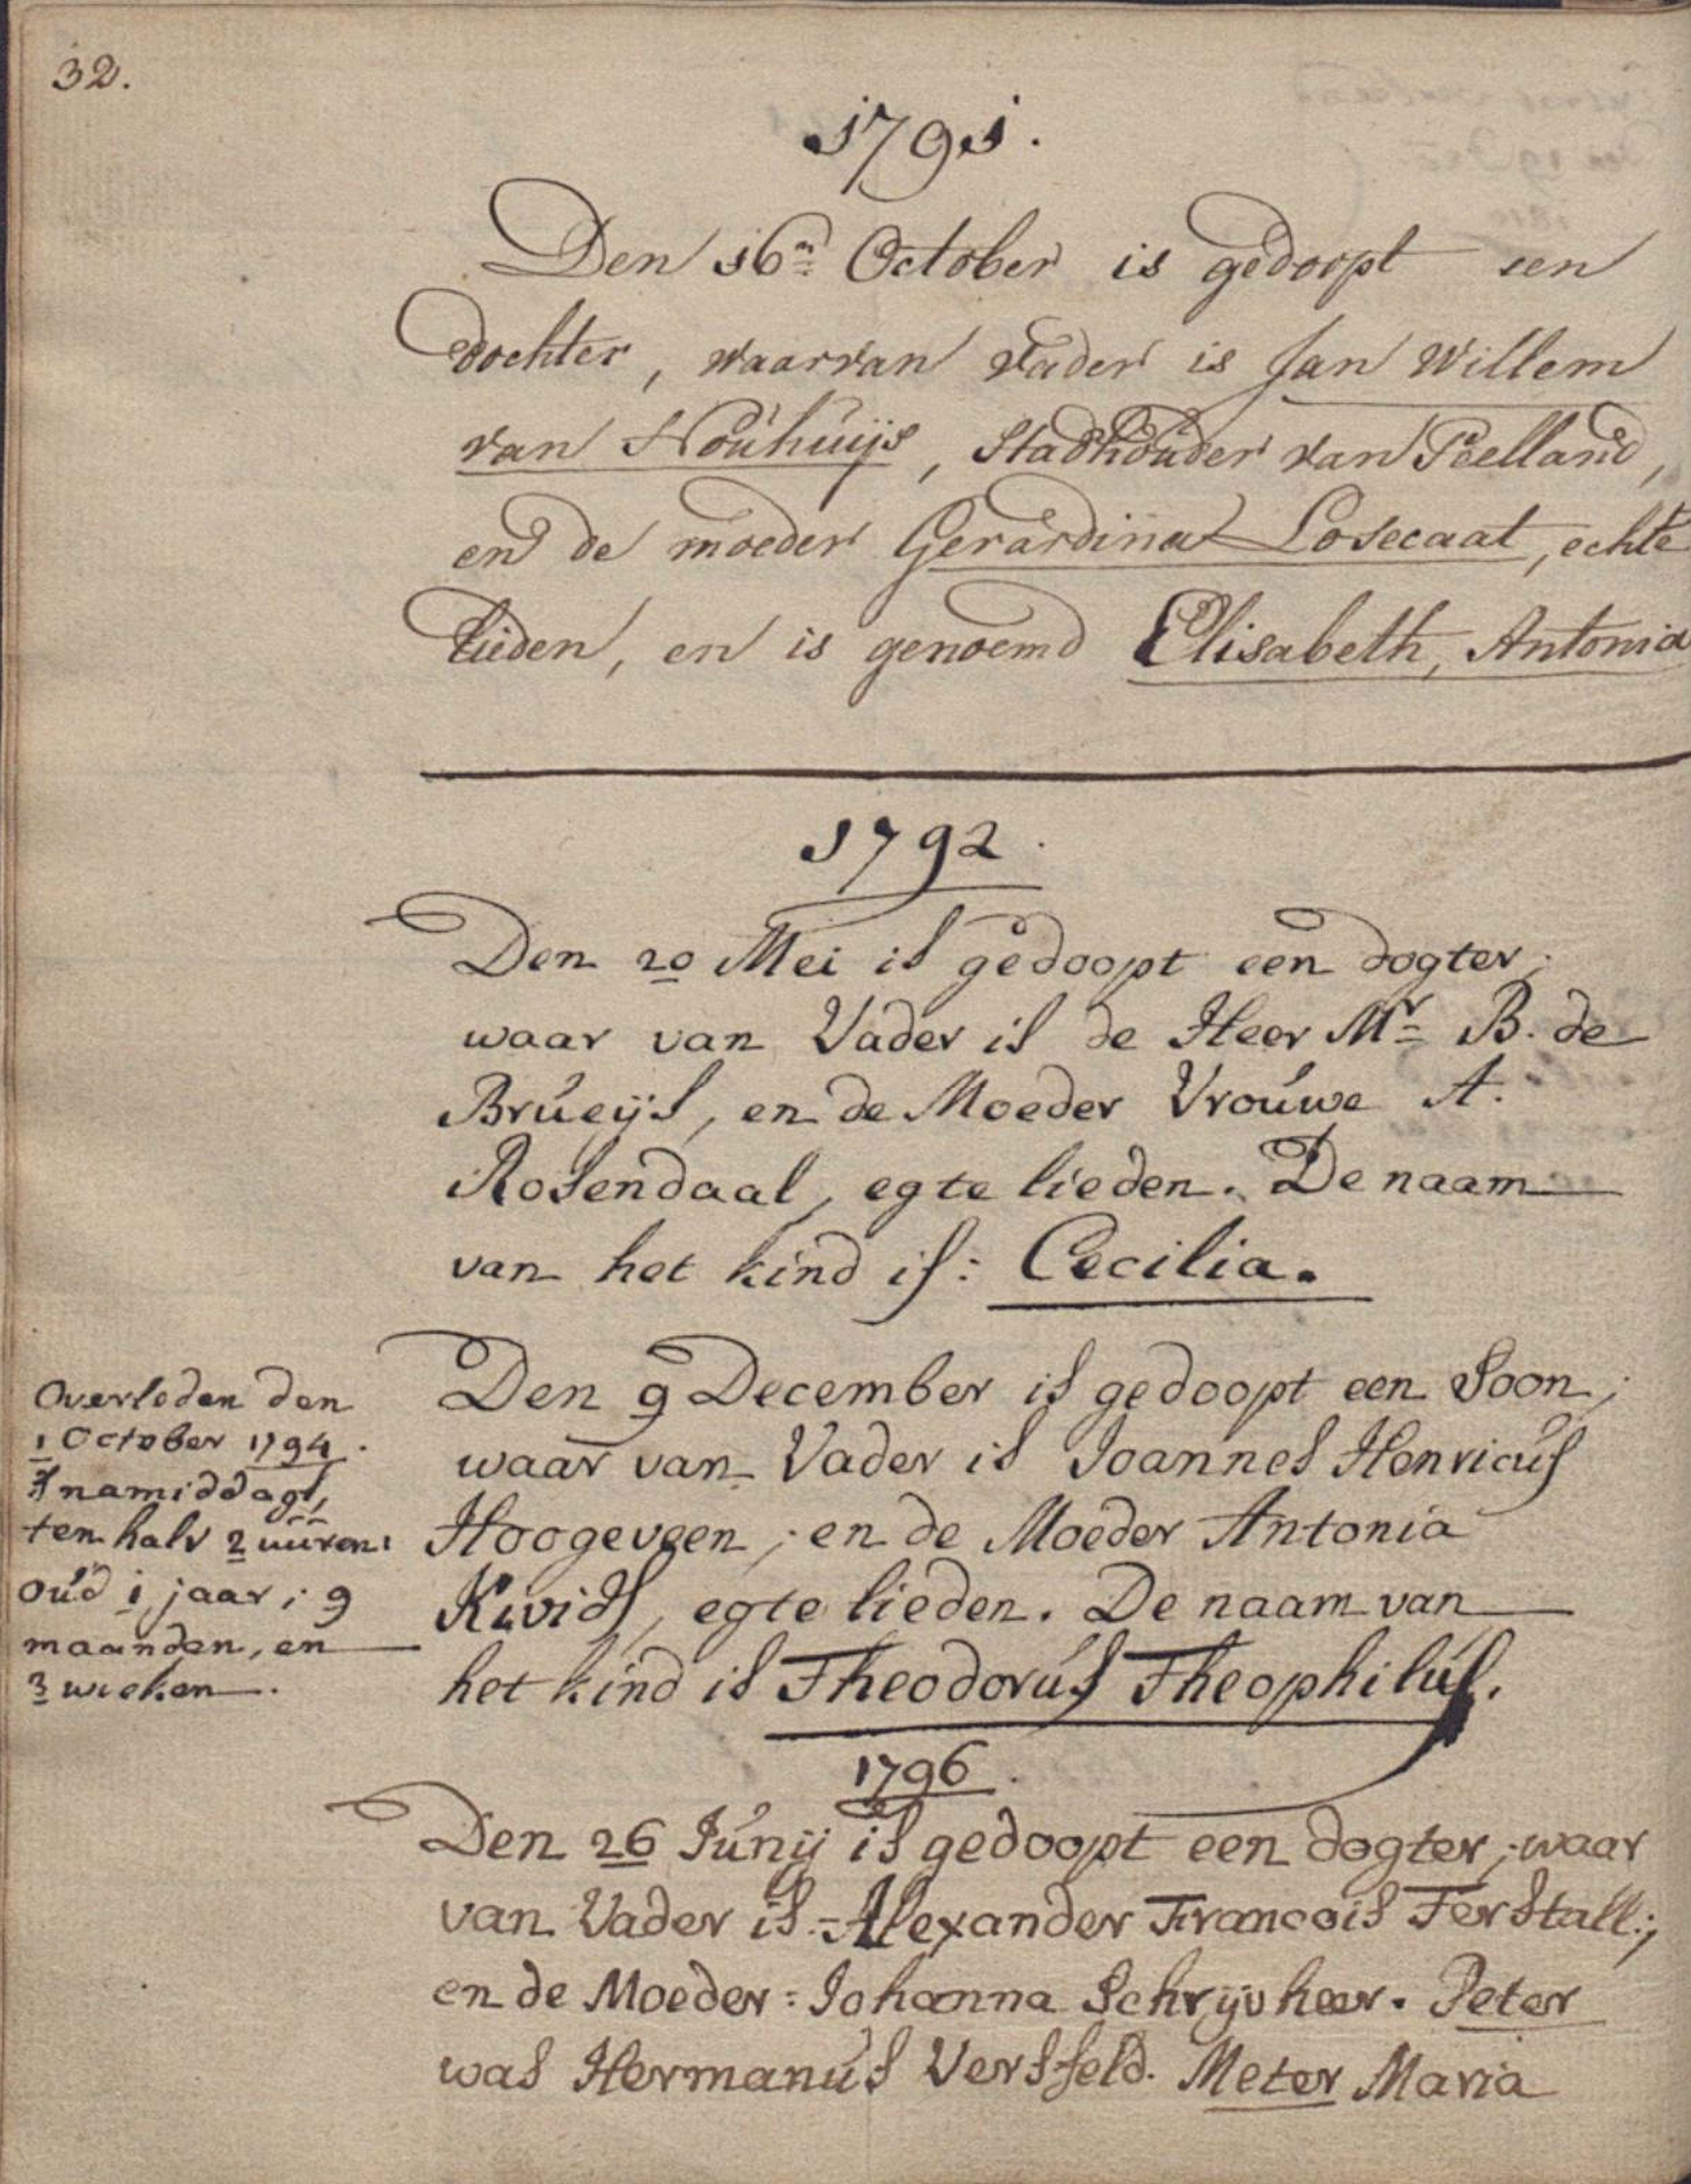 32.
1791.
Den 16n October is gedoopt een
dochter, waarvan vader is Jan Willem
van Nouhuijs, Stadhouder van Peelland,
en de moeder Gerardina Losecaat, echte
lieden, en is genoemd Elisabeth, Antonia
1792.
Den 20 Mei is gedoopt een dogter;
waar van Vader is de Heer Mr B. de
Brueijs, en de Moeder Vrouwe A.
Rosendaal, egte lieden. De naam
van het kind is: Cecilia.
Den 9 December is gedoopt een Soon;
waar van Vader is Joannes Henricus
Hoogeveen; en de Moeder Antonia
egte lieden. De naam van
het kind is Theodorus Theophilus.
Overleden den
1 October 1794.
's namiddags,
ten halv 2 uuren:
oud 1 jaar; 9
maanden, en
3 weeken.
1796.
Den 26 Junij is gedoopt een dogter; waar
van Vader is: Alexander Francois Ferstall;
en de Moeder: Johanna Schrijvheer. Peter
was Hermanus Versfeld. Meter Maria